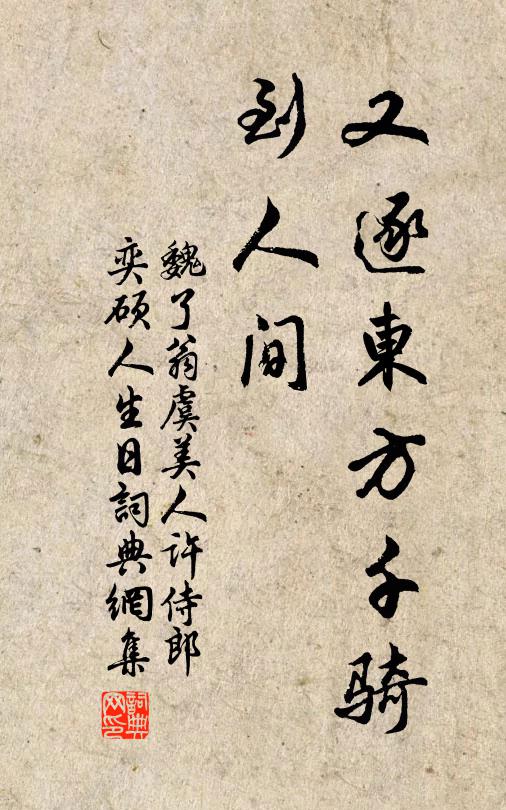 又逐東方千骑
到人间
魏了翁虞美人许侍郎
奕硕人生日詞典網集
詞典网印